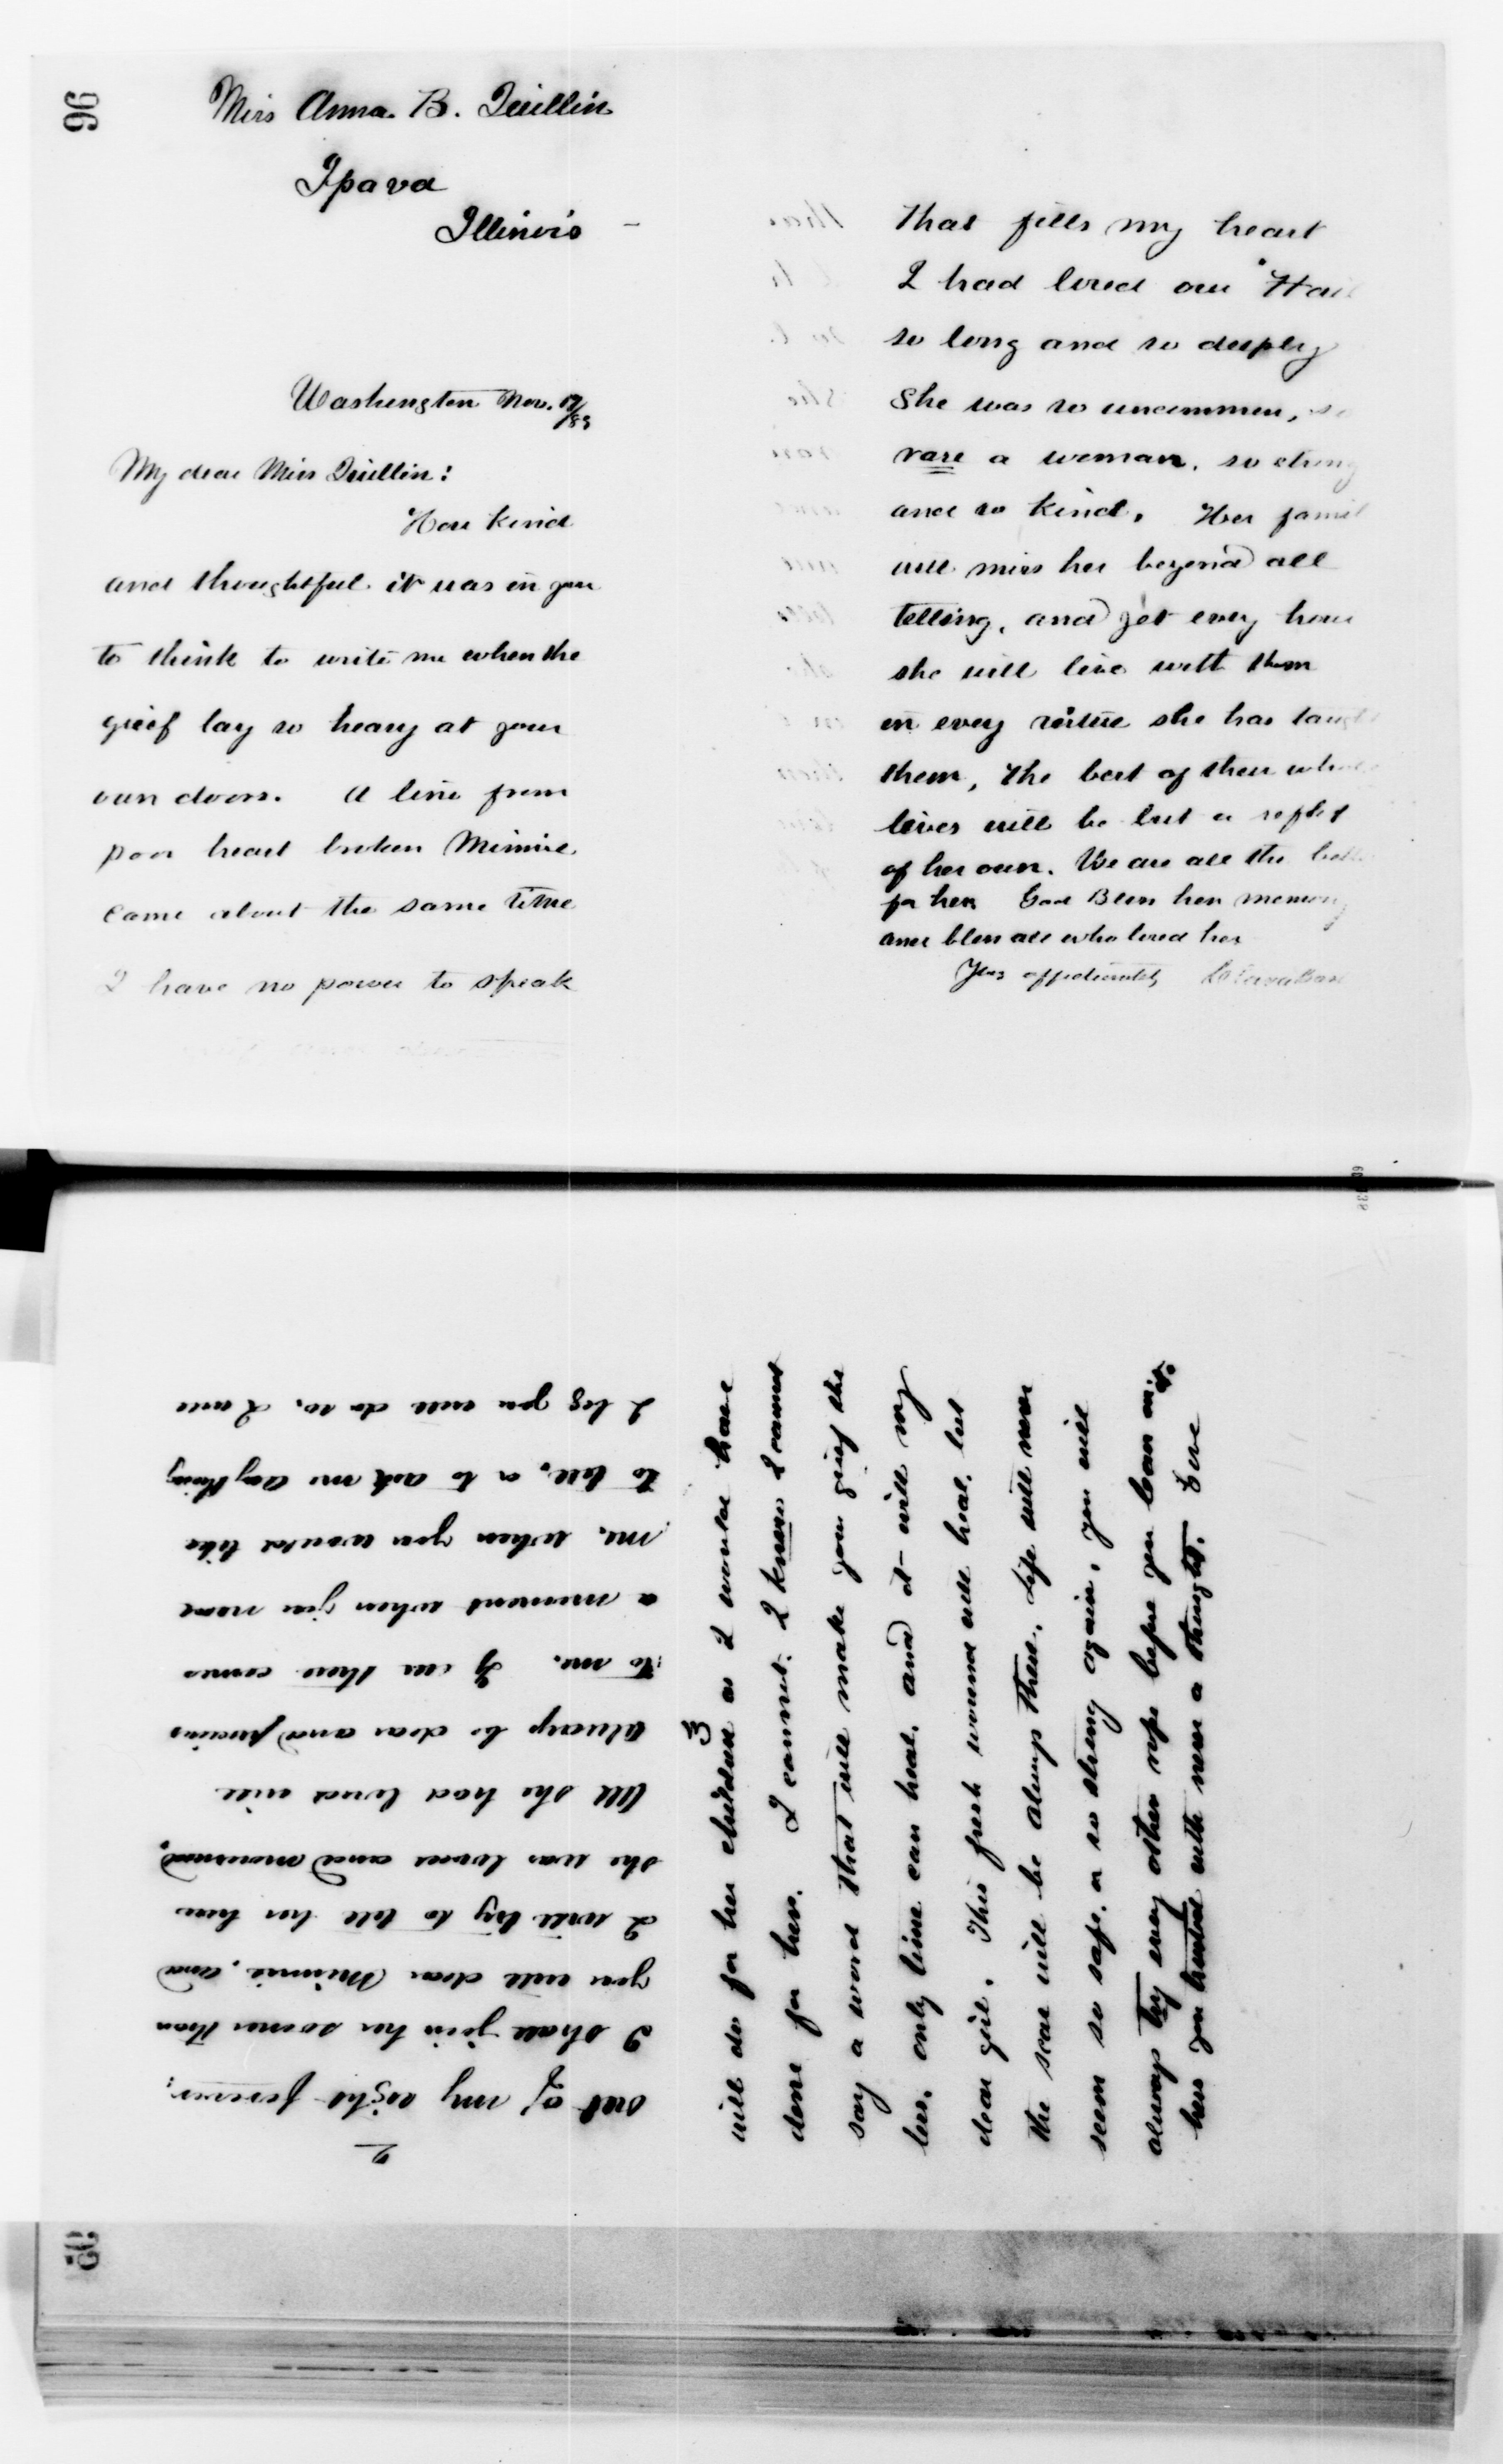 96
Miss Anna B. Quillin
Ipava
Illinois
Washington Nov.
My dear Miss Quillin:
How kind
and thoughtful it was in you
to think to write me when the
grief lay so heavy at your
own doors. A line from
poor heart broken Minnie
came about the same time
I have no power to speak
that fills my heart
I had loved our
so long and so deeply
She was so uncommon, so
rare a woman, so strong
and so kind. Her famil
will miss her beyond all
telling, and yet every hour
she will live with them
in every virtue she has taught
them, the best of their whole
lives will be but a reflex
of her own. We are all the better
for her God Bless her memory
and bless all who loved her
Yours affectionately Clara Bart
2
out of my sight forever;
I shall join her sooner than
you will dear Minnie, and
I will try to tell her how
she was loved and mourned,
All she had loved will
always be dear and precious
to me. If ever there comes
a moment when you need
me, when you would like
to tell, or to ask me anything
I beg you will do so, I will
3
will do for her children as I would have
done for her. I cannot, I know I cannot
say a word that will make your grief the
less, only time can heal, and it will my
dear girl. This fresh wound will heal, but
the scar will be always there, life will never
seem so safe, or so strong again, you will
always try every other rope before you lean on it.
here you trusted with never a thought. Ever
95